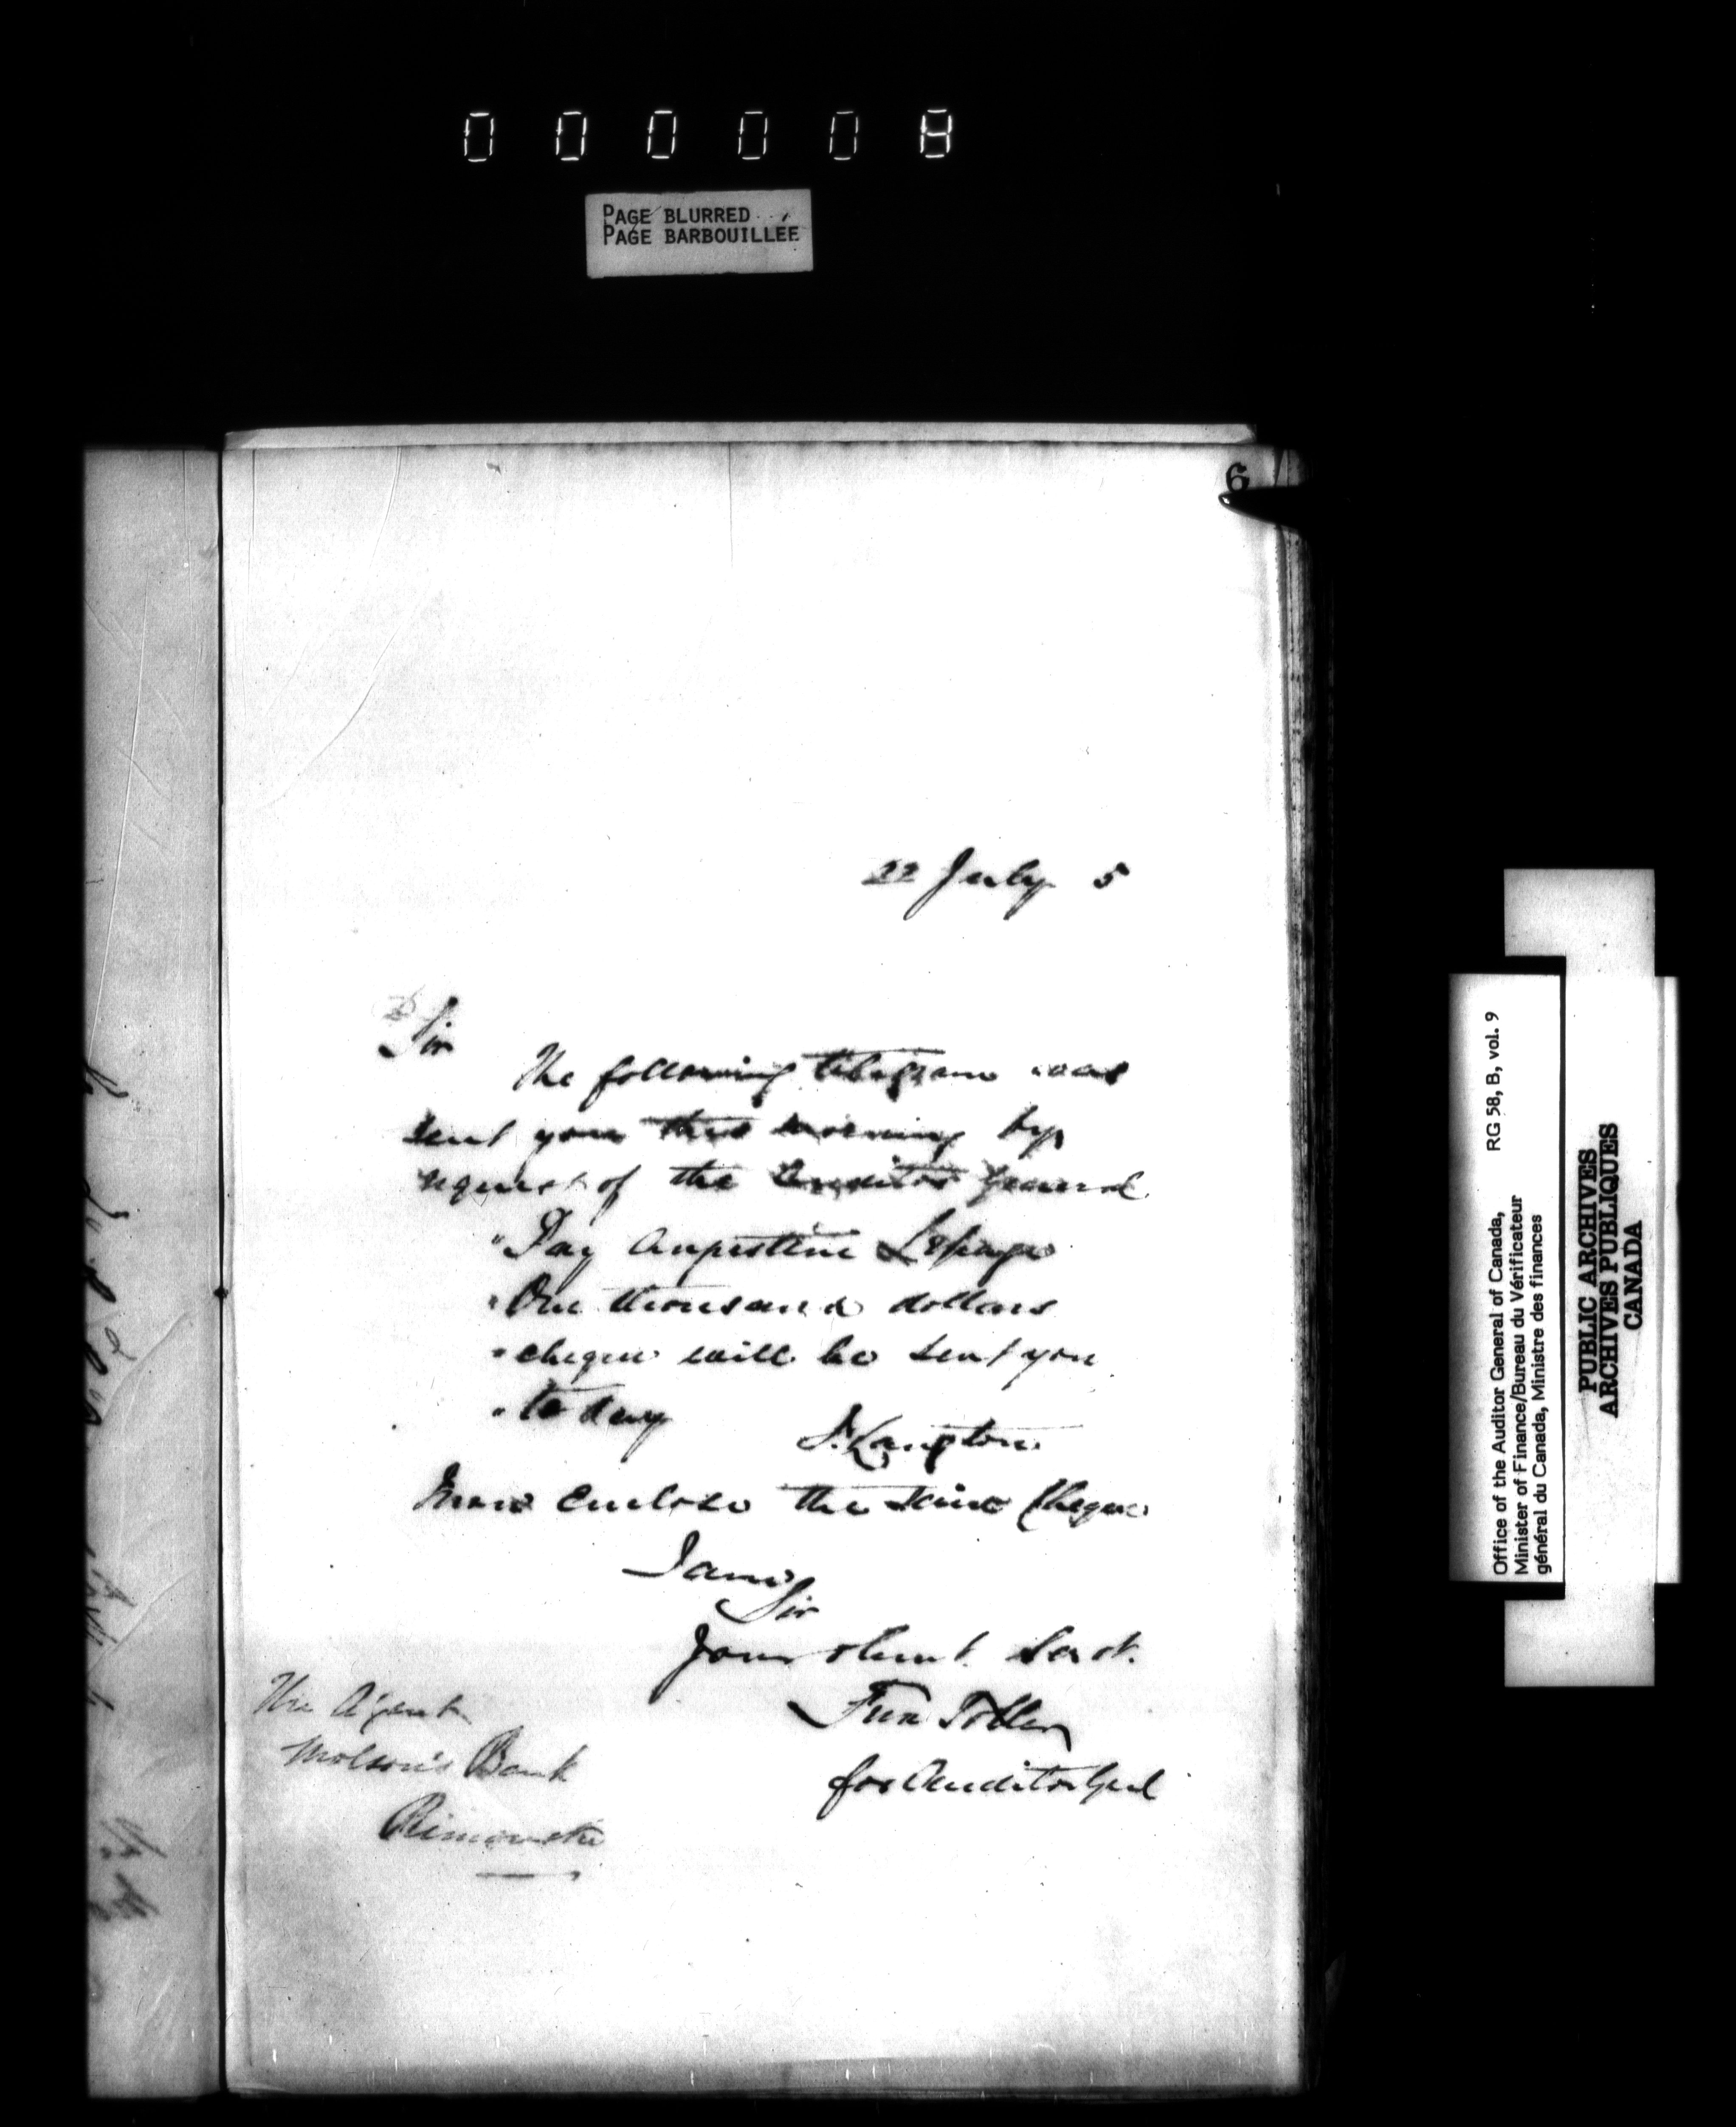 000008
PAGE BLURRED
PAGE BARBOUILLÉE
6
22 July 5
Sir
The following telegram was
sent you this morning by
request of the Auditor General
"Pay Augustine Lepage
"One thousand dollars
"cheque will be sent you
"to day
J. Langton
I now enclose the said Cheque
I am
Sir
Your obent. Servt.
for Auditor Genl
The Agent
Molson's Bank
Rimouski
Office of the Auditor General of Canada, RG 58, B, vol. 9
Minister of Finance/Bureau du Vérificateur
général du Canada, Ministre des finances
PUBLIC ARCHIVES
ARCHIVES PUBLIQUES
CANADA